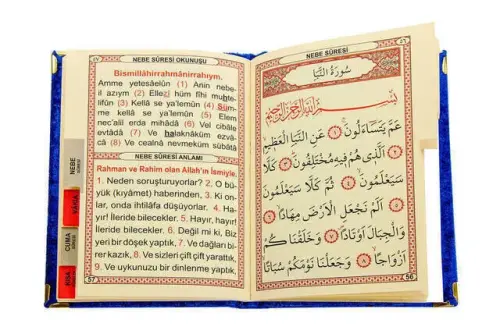 NEBE SÛRESİ OKUNUŞU
Bismillâhirrahmânirrahıym.
Amme yetesâelûn (1) Anin nebe-
il azıym (2) Ellezî hüm fîhi muhte-
lifûn (3) Kellâ se ya'lemûn (4) Süm-
me kellâ se ya'lemûn (5) Elem
nec'alil erda mihâdâ (6) Vel cibâle
evtâdâ (7) Ve halaknâküm ezvâ-
câ (8) Ve cealnâ nevmeküm sübâtâ
NEBE SÛRESİ ANLAMI
Rahman ve Rahim olan Allah'ın İsmiyle.
1. Neden soruşturuyorlar? 2. O bü-
yük (kıyâmet) haberinden, 3. Ki on-
lar, onda ihtilâfa düşüyorlar. 4. Ha-
yır! İleride bilecekler. 5. Hayır, hayır!
İleride bilecekler. 6. Değil mi ki, Biz
yeri bir döşek yaptık, 7. Ve dağları bi-
rer kazık, 8. Ve sizleri çift çift yarattık,
9. Ve uykunuzu bir dinlenme yaptık,
57
NEBE
VÂKIA
CUMA
NEBE SÛRESİ
٥٦
سُورَةُ النَّبَأِ
بِسْمِ اللّٰهِ الرَّحْمٰنِ الرَّحِيمِ
عَمَّ يَتَسَاءَلُونَ ﴿١﴾ عَنِ النَّبَأِ الْعَظِيمِ
﴿٢﴾ اَلَّذِي هُمْ فِيهِ مُخْتَلِفُونَ ﴿٣﴾ كَلَّا
سَيَعْلَمُونَ ﴿٤﴾ ثُمَّ كَلَّا سَيَعْلَمُونَ ﴿٥﴾
اَلَمْ نَجْعَلِ الْاَرْضَ مِهَادًا ﴿٦﴾
وَالْجِبَالَ اَوْتَادًا ﴿٧﴾ وَخَلَقْنَاكُمْ
اَزْوَاجًا ﴿٨﴾ وَجَعَلْنَا نَوْمَكُمْ سُبَاتًا
56